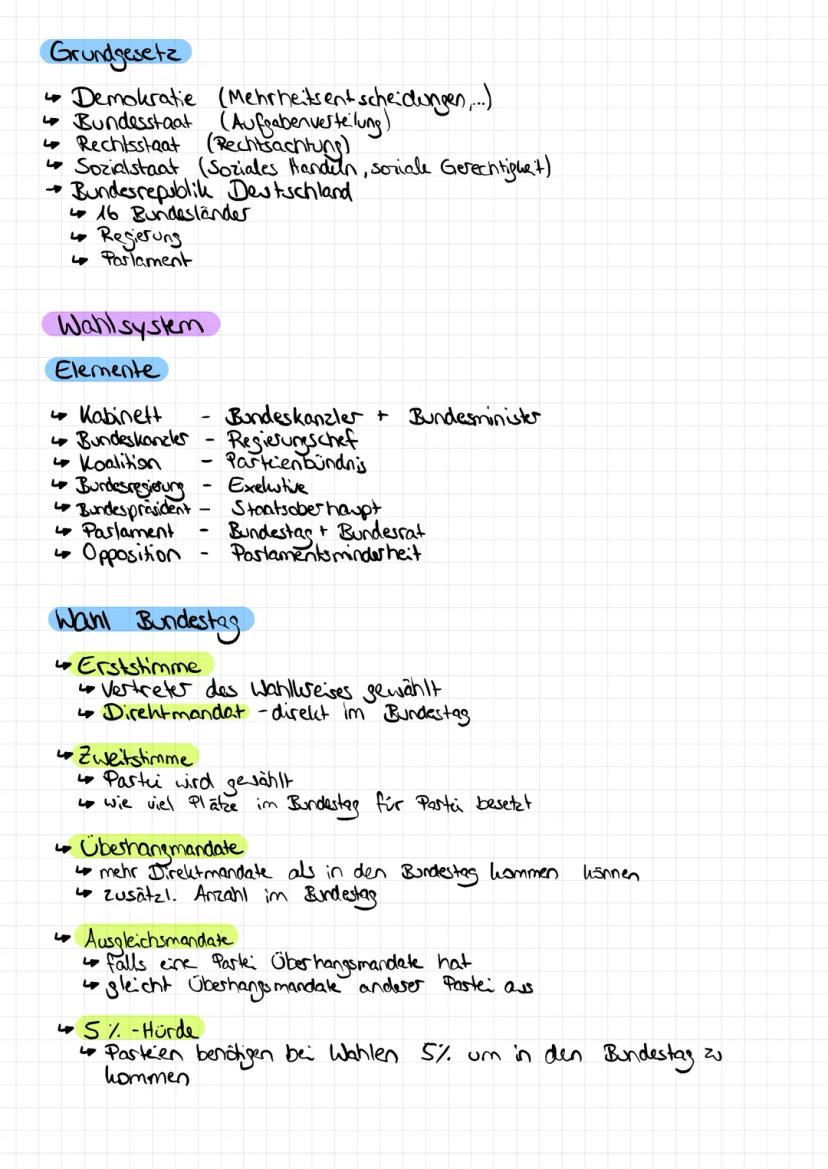 Grundgesetz
↳ Demokratie (Mehrheitsentscheidungen,...)
↳ Bundesstaat (Aufgabenverteilung)
↳ Rechtsstaat (Rechtsachtung)
↳ Sozialstaat (Soziales Handeln, soziale Gerechtigkeit)
→ Bundesrepublik Deutschland
↳ 16 Bundesländer
↳ Regierung
↳ Parlament
Wahlsystem
Elemente
↳ Kabinett - Bundeskanzler + Bundesminister
↳ Bundeskanzler - Regierungschef
↳ Koalition - Parteienbündnis
↳ Bundesregierung - Exekutive
↳ Bundespräsident - Staatsoberhaupt
↳ Parlament - Bundestag + Bundesrat
↳ Opposition - Parlamentsminderheit
Wahl Bundestag
↳ Erststimme
↳ Vertreter des Wahlkreises gewählt
↳ Direktmandat - direkt im Bundestag
↳ Zweitstimme
↳ Partei wird gewählt
↳ wie viel Plätze im Bundestag für Partei besetzt
↳ Überhangmandate
↳ mehr Direktmandate als in den Bundestag kommen können
↳ zusätzl. Anzahl im Bundestag
↳ Ausgleichsmandate
↳ falls eine Partei Überhangsmandate hat
↳ gleicht Überhangsmandate anderer Partei aus
↳ 5% -Hürde
↳ Parteien benötigen bei Wahlen 5% um in den Bundestag zu
kommen